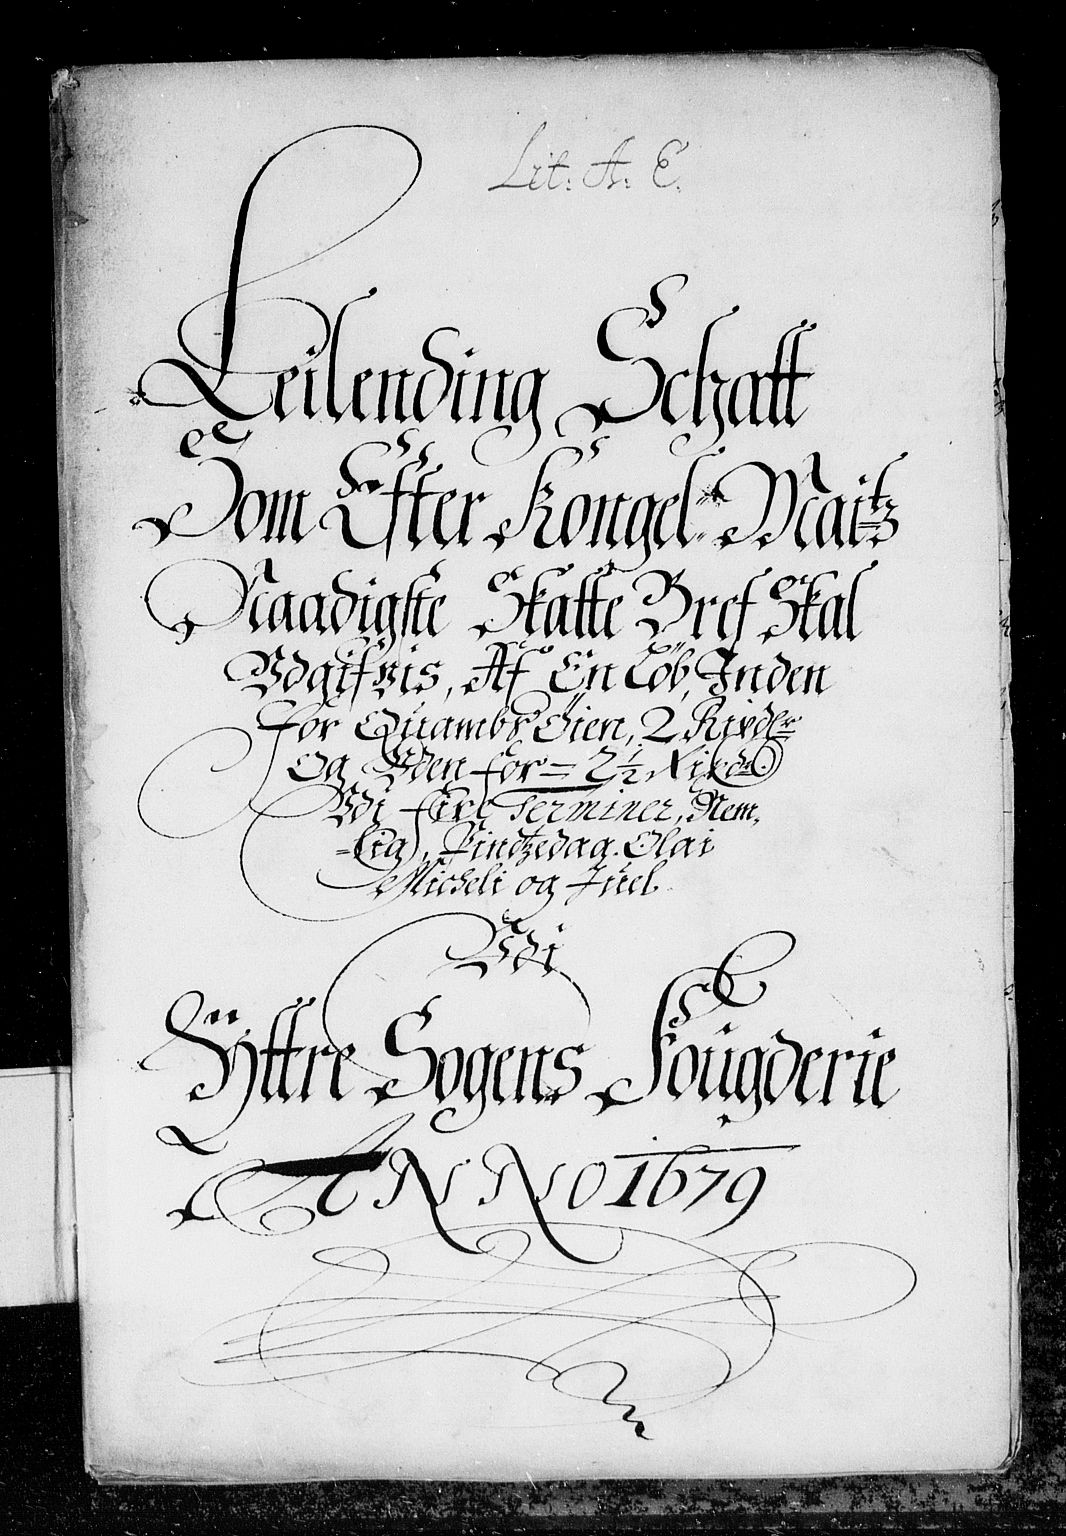 Lit: A: E.
Leilending Schatt
Som Efter Kongel: Maitz
Naadigste Skatte Bref Skal
Vdgifvis, Af En Løb, Inden
for Quambs Øien, 2 Rixdlr
Og Vden for = 2½ Rixdr.
Vdi fire Terminer, Nem-
=lig, Pindtzedag. Olai
Micheli og Juel.
Vdi
Ÿttre Sogens Fougderie
ANNO 1679